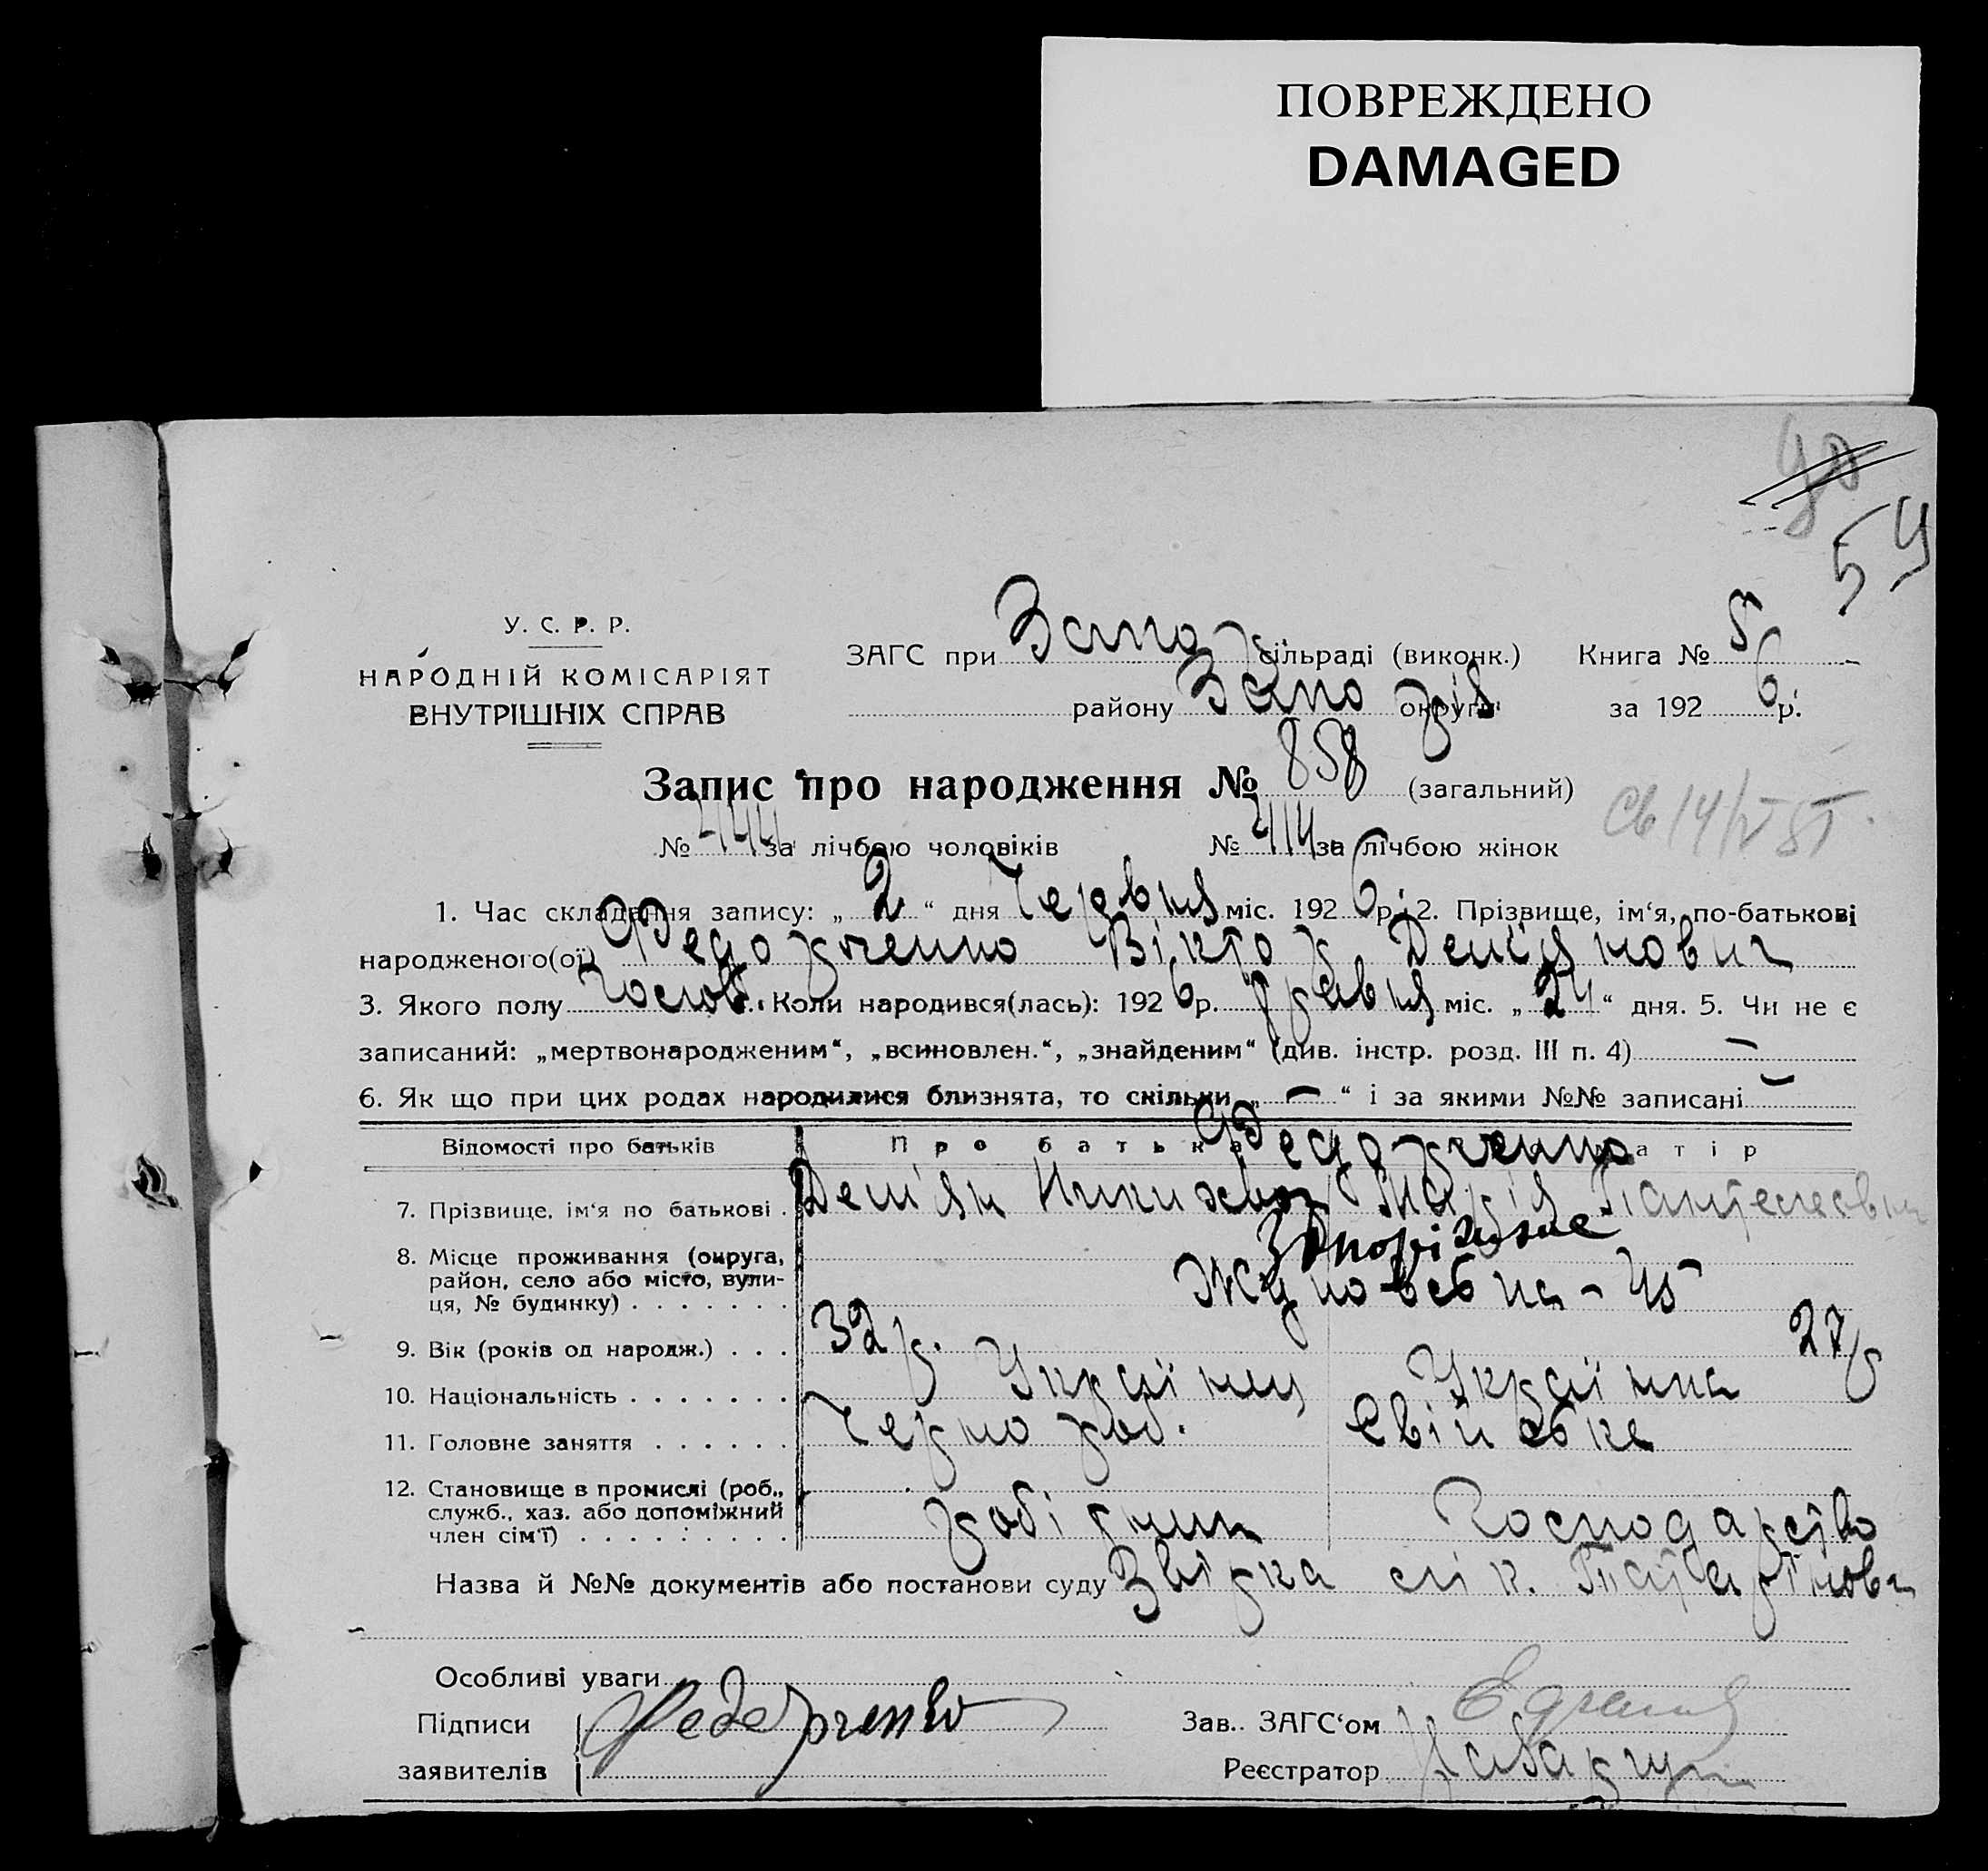 ПОВРЕЖДЕНО
DAMAGED
54
У. С. Р. Р.
НАРОДНІЙ КОМІСАРІЯТ
ВНУТРІШНІХ СПРАВ
ЗАГС при Запор сільраді (виконк.) Книга № 5
району Запоріз округи за 1926 р.
Запис про народження № 858 (загальний)
№ 444 за лічбою чоловіків № 414 за лічбою жінок
1. Час складання запису: „2“ дня Червня міс. 1926 р. 2. Прізвище, ім‘я, по-батькові
народженого(ої) Федорченко Віктор Дем'янович
3. Якого полу Чолов. Коли народився(лась): 1926 р. Травня міс. „24“ дня. 5. Чи не є
записаний: „мертвонародженим“, „всиновлен.“, „знайденим“ (див. інстр. розд. III п. 4) —
6. Як що при цих родах народилися близнята, то скільки „—“ і за якими №№ записані —
Відомості про батьків Про батька Федорченко матір
7. Прізвище, ім‘я по батькові Дем'ян Марія
8. Місце проживання (округа, район, село або місто, вули-ця, № будинку) Запоріжжє
Жуковська - 45
9. Вік (років од народж.) 32 р. 27 р
10. Національність Українец Українка
11. Головне заняття Чернороб. Свійське
12. Становище в промислі (роб., служб., хаз. або допоміжний член сім‘ї) робітник Господарство
Назва й №№ документів або постанови суду лік.
Особливі уваги
Підписи Федорченко Зав. ЗАГС‘ом
заявителів Реєстратор